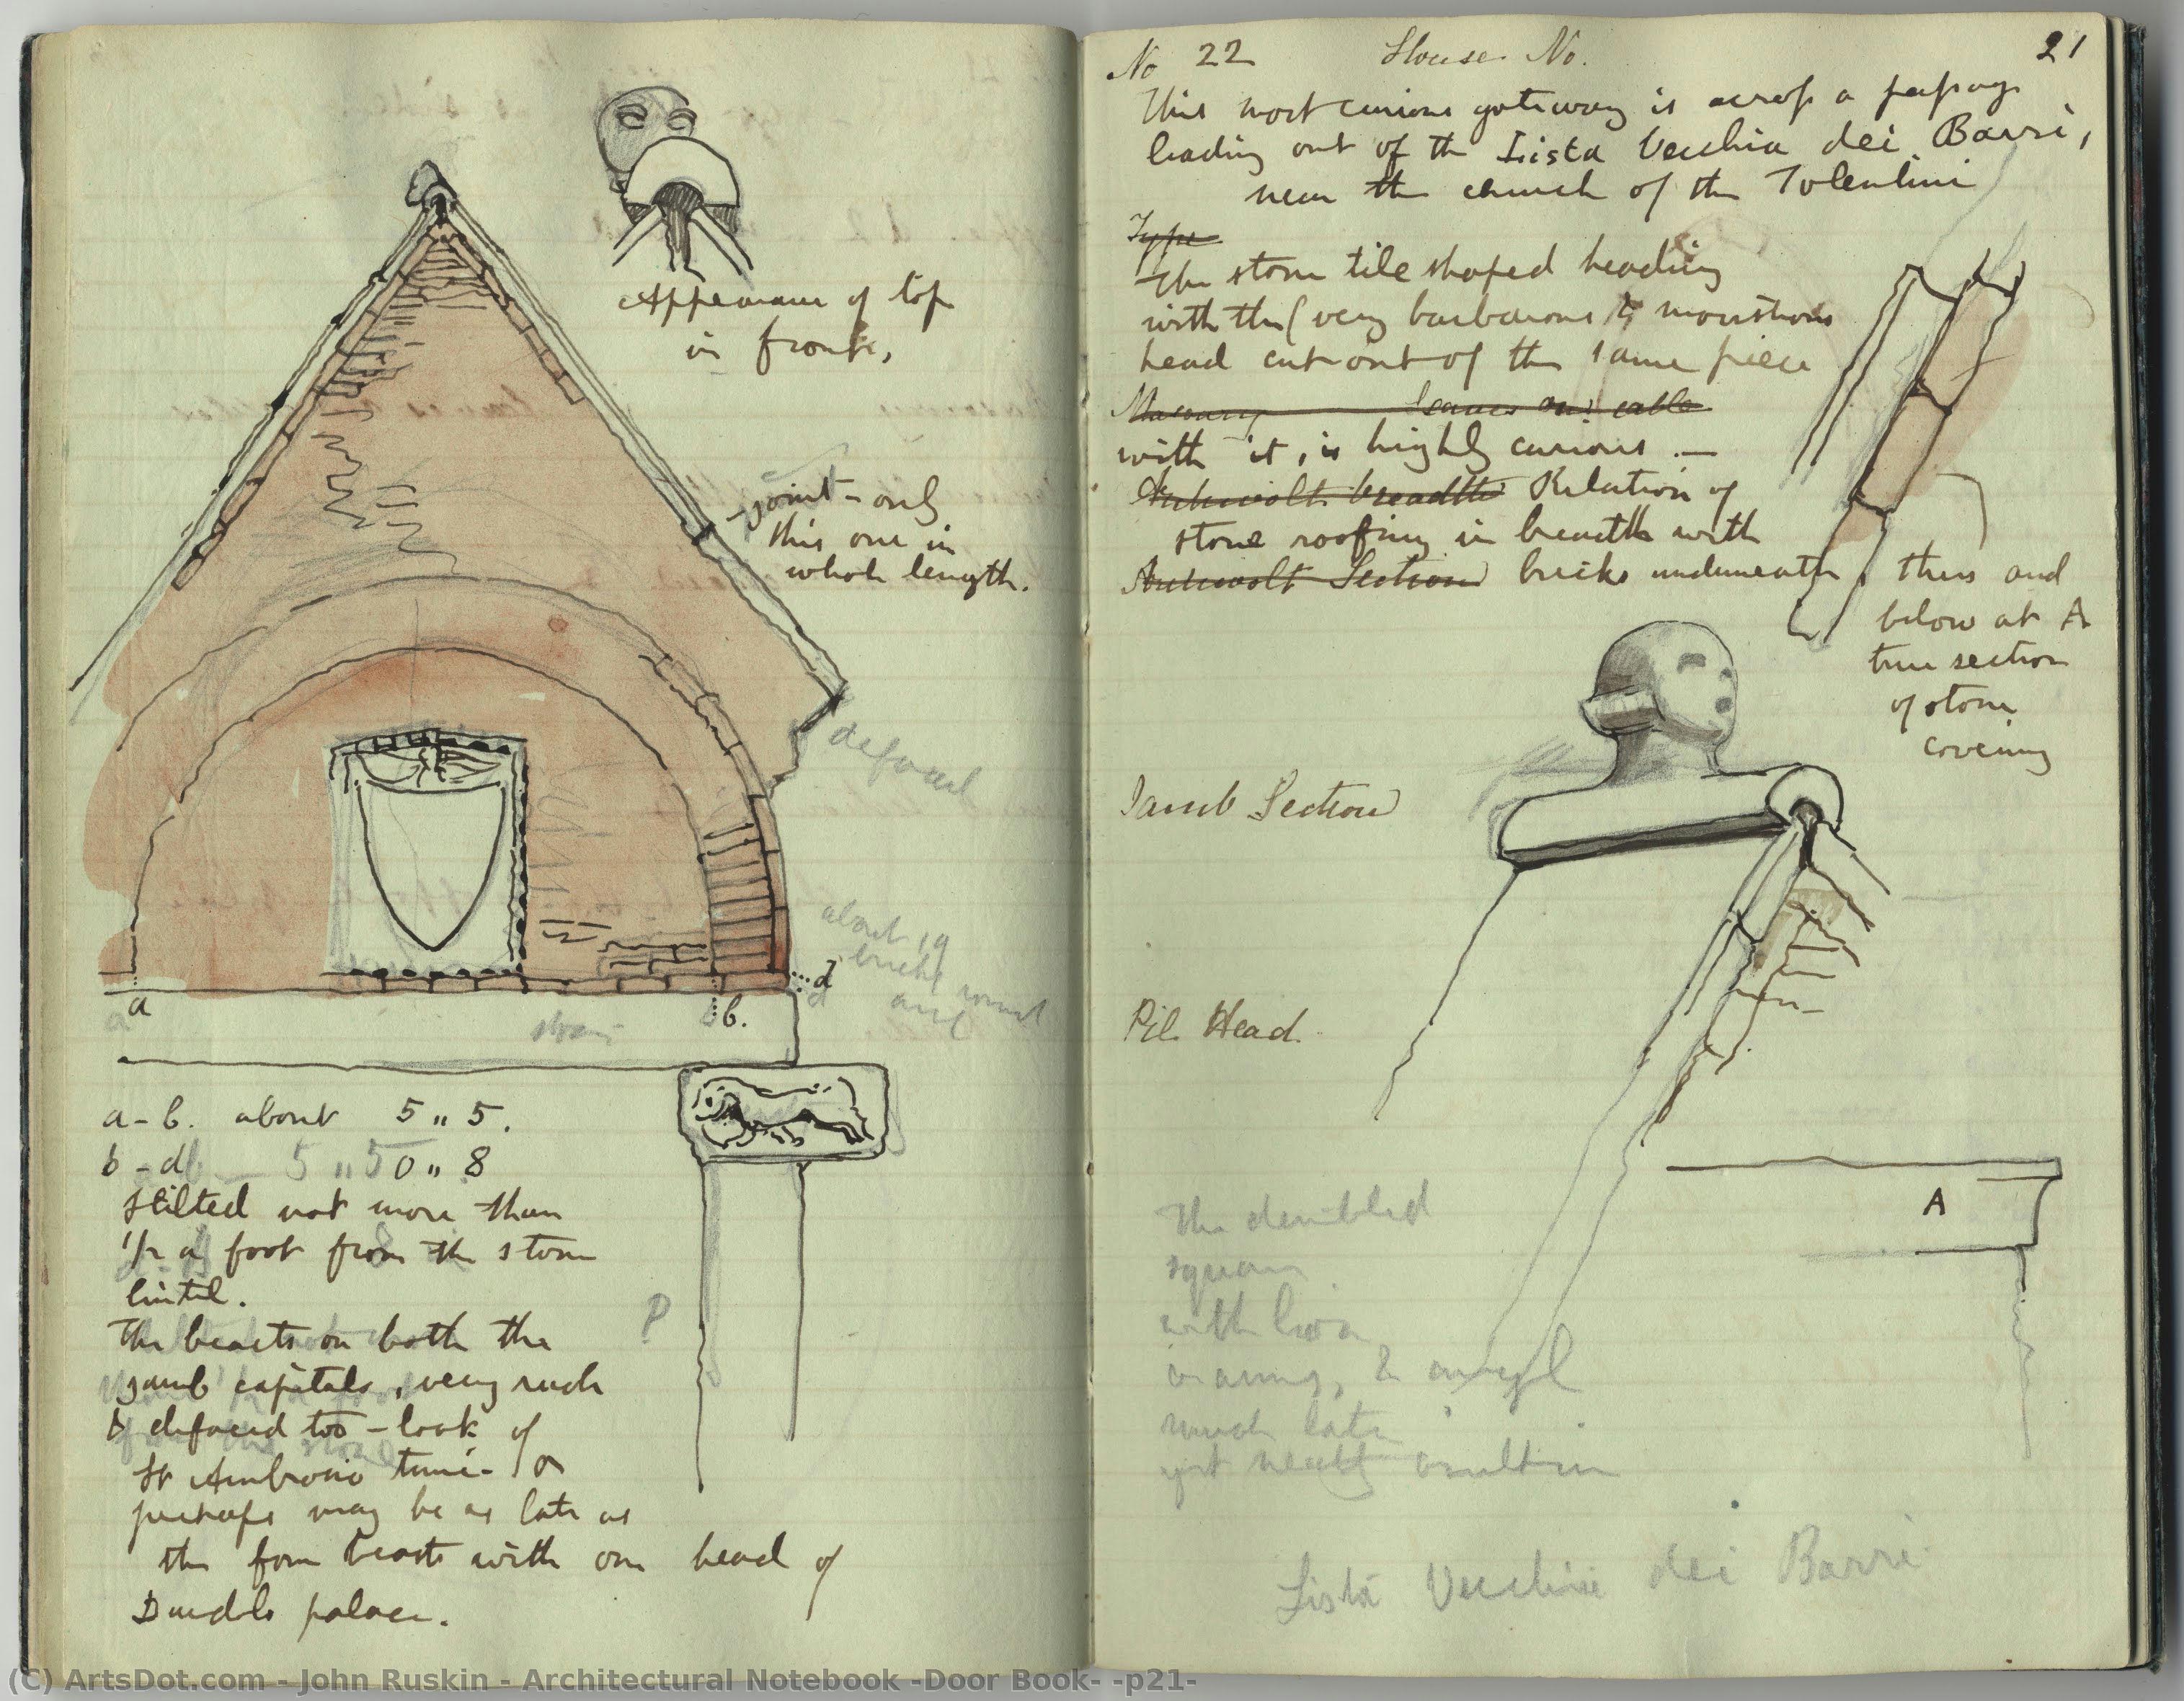 Appearance of top
in front.
joint - only
this one in
whole length.
defaced
about 19
bricks
round
arc
a
b.
d
stone
a - b. about 5 " 5.
b - d 0 " 8
stilted not more than
1/2 a foot from the stone
lintel.
The beasts on both the
jamb capitals, very rude
& defaced too - look of
St Ambrogio time - or
perhaps may be as late as
the four beasts with one head of
Dandolo palace.
P
No 22 House No. 21
This most curious gateway is across a passage
leading out of the Lista Vecchia dei Barri,
near the church of the Tolentini
Type
The stone tile shaped heading
with the (very barbarous & monstrous
head cut out of the same piece
Masonry
with it, is highly curious. —
Archivolt breadth Relation of
stone roofing in breadth with
Archivolt Section bricks underneath, thus and
below at A
true section
of stone
covering
Jamb Section
Pil. Head.
A
The dentilled
square
with lion
& angel
much later
yet neatly built in
Lista Vecchia dei Barri
(C) ArtsDot.com - John Ruskin - Architectural Notebook -Door Book- -p21-